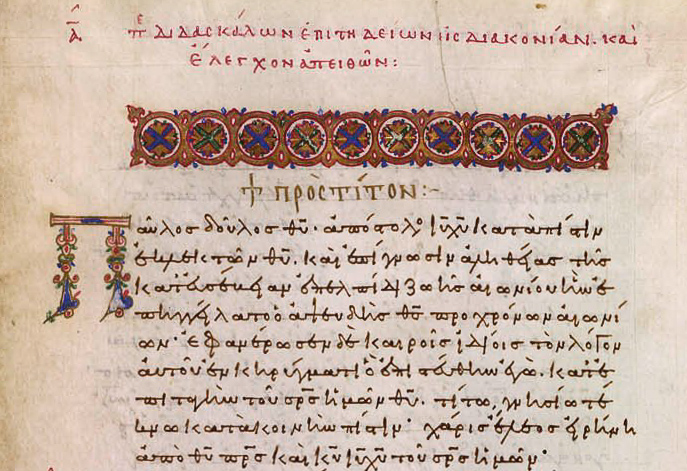 α̅ πε διδασκάλων ἐπιτηδείων εἰς διακονίαν. καὶ
ἔλεγχον ἀπειθῶν:
† πρὸς τίτον:~
Παῦλος δοῦλος θ̅υ̅. ἀπόστολο ι̅υ̅ χ̅υ̅ κατὰ πίστιν
ἐκλεκτῶν θ̅υ̅. καὶ ἐπίγνωσιν ἀληθείας τῆς
κατευσέβειαν ἐπελπίδι ζωῆς αἰωνίου ἣν ἐ
πηγγείλατο ὁ ἀψευδὴς θ̅ς̅ προ χρόνων αἰωνί
ων· ἐφανέρωσεν δὲ καιροῖς ἰδίοις τὸν λόγον
αὐτοῦ ἐν κηρύγματι ὃ ἐπιστεύθην ἐγὼ. κατἐ
πιταγὴν τοῦ σ̅ρ̅ς̅ ἡμῶν θ̅υ̅. τίτω, γνησίω τέ
κνω κατὰ κοινὴν πίστιν· χάρις ἔλεος εἰρήνη
ἀπὸ θ̅υ̅ π̅ρ̅ς̅ καὶ κ̅υ̅ ι̅υ̅ χ̅υ̅ τοῦ σ̅ρ̅ς̅ ἡμῶν·